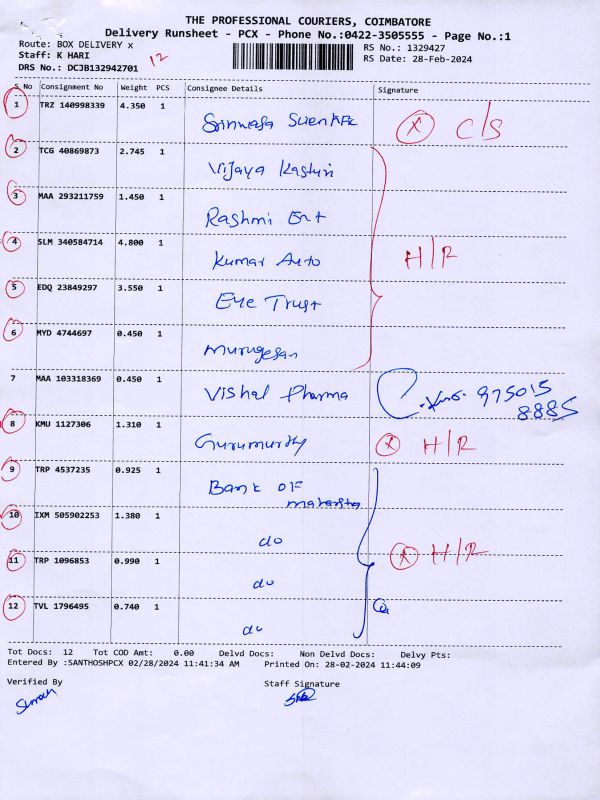 THE PROFESSIONAL COURIERS, COIMBATORE
Delivery Runsheet - PCX - Phone No.:0422-3505555 - Page No.:1
Route: BOX DELIVERY x
Staff: K HARI
DRS No.: DCJB132942701
12
RS No.: 1329427
RS Date: 28-Feb-2024
S No Consignment No Weight PCS Consignee Details Signature
1 TRZ 140998339 4.350 1
Srinivasa Scientific X C/S
2 TCG 40869873 2.745 1
Vijaya Kasturi
3 MAA 293211759 1.450 1
Rashmi Ent
4 SLM 340584714 4.800 1
Kumar Auto H/R
5 EDQ 23849297 3.550 1
Eye Trust
6 MYD 4744697 0.450 1
Murugesan
7 MAA 103318369 0.450 1
Vishal Pharma 975015
8885
8 KMU 1127306 1.310 1
Gurumurthy X H/R
9 TRP 4537235 0.925 1
Bank OF
maharstra
10 IXM 505902253 1.380 1
do
11 TRP 1096853 0.990 1 X H/R
do
12 TVL 1796495 0.740 1
do
Tot Docs: 12 Tot COD Amt: 0.00 Delvd Docs: Non Delvd Docs: Delvy Pts:
Entered By :SANTHOSHPCX 02/28/2024 11:41:34 AM Printed On: 28-02-2024 11:44:09
Verified By Staff Signature